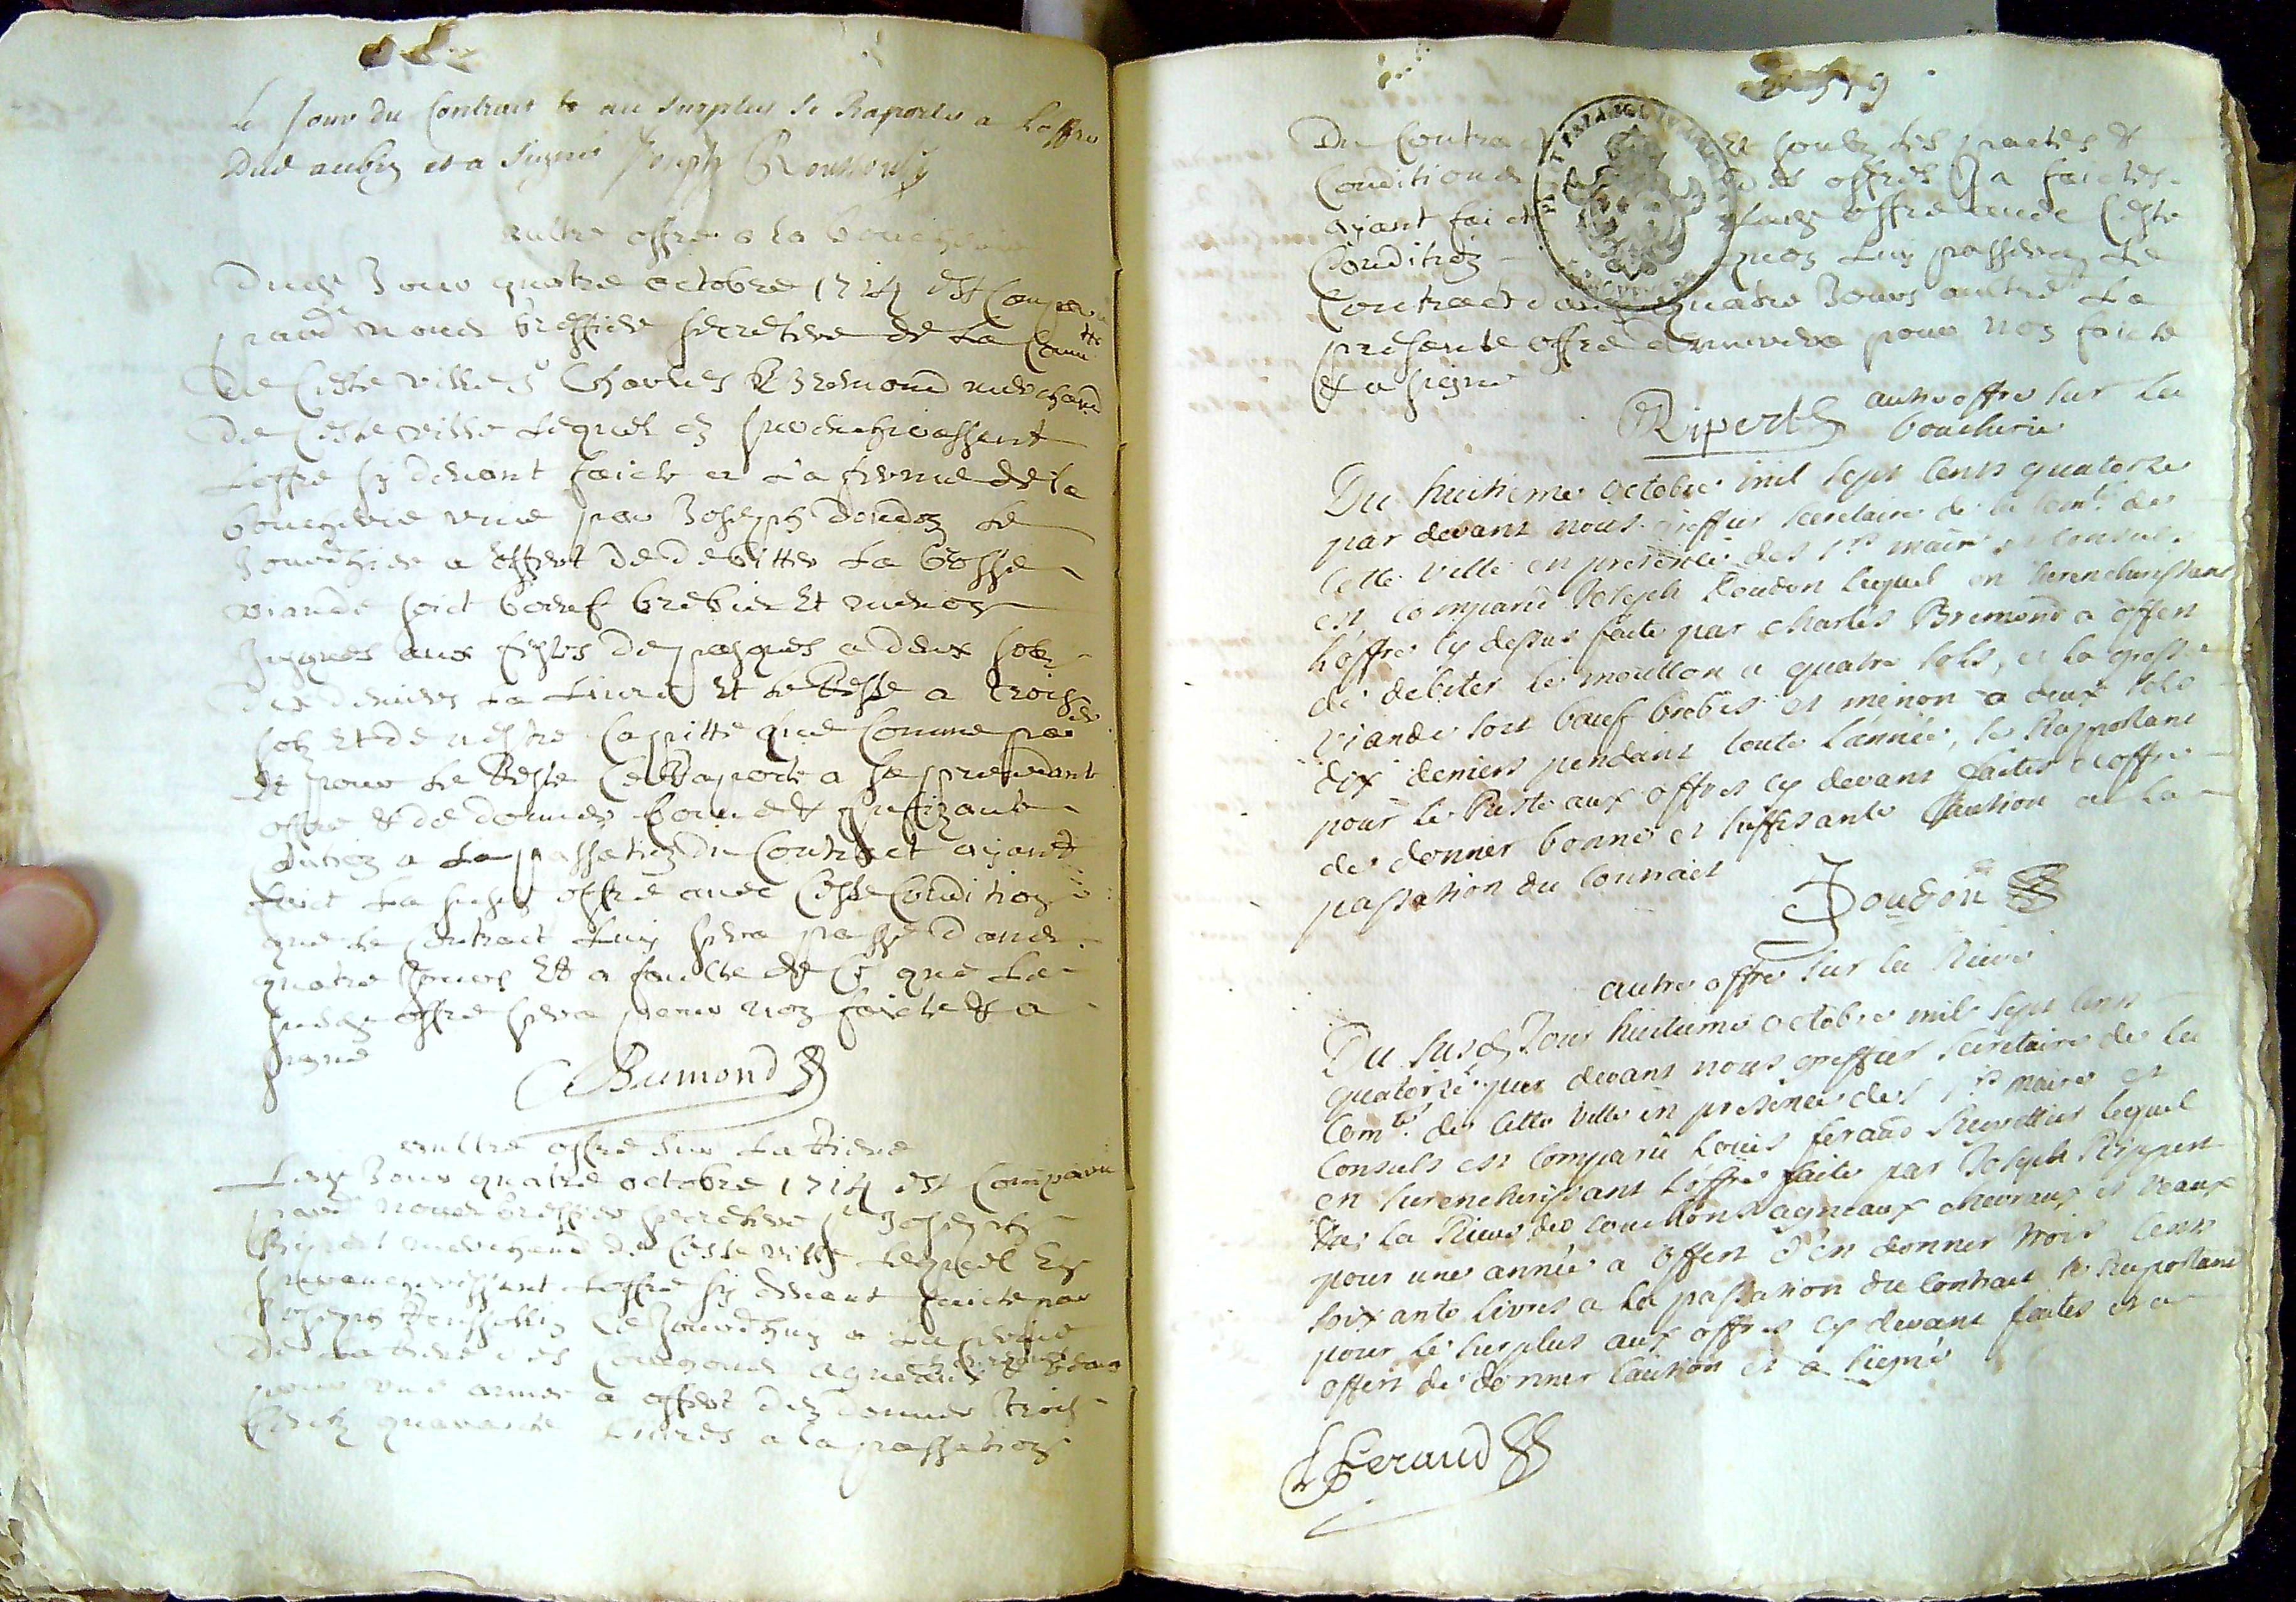 Le Jour du Contract te au Surplus se Raporte a Loffre
Dud aubin et a Signé Joseph
aultre offre a la boucherie
Dud Jour quatre octobre 1714 est Comparu
pard nous greffier secretere de la Comte
de Ceste ville Sr Charles Bremond marchand
de Ceste ville Lequel en surencherissant
Loffre sy devant faicte a la ferme de la
boucherie par Joseph doudon Le
Jourdhier a offert de debitter La Grosse
viande soit boeuf brebis Et menon
Jusques aux festes de pasques a deux solz
dix deniers La Livre Et Le Reste a trois
solz Et de
Et pour Le Reste Ce Raporte a
offre & de donner bonne & suffizante
Caution a La passation du Contract ayant
faict La susd offre avec Ceste Condition
que Le Contract Luy sera passé dans
quatre Jours Et a faulte de Ce que La
susd offre sera pour non faicte & a
signé
CBremond
aultre offre sur La Rieve
Dud Jour quatre octobre 1714 est Comparu
pard nous Greffier secretere Sr Joseph
Ripert marchand de Ceste ville Lequel En
surencherissant Loffre sy devant faicte par
Joseph Le Jourdhuy a La ferme
de La Rieve des agneaux chevreaux & veaux
pour une année a offert den donner trois
Centz quarante Livres a la passation
579
Du Contra Et soubz Les pactes &
Conditions offres Ja faictes
ayant faict offre avec Ceste
Condition quon Luy passera Le
Contract dans quatre Jours aultre La
presente offre demurera pour non faicte
& a signé
Ripert
autre offre sur la
boucherie
Du huitieme octobre mil sept cents quatorze
par devant nous greffier secretaire de la Comté de
cette ville en presence des Srs maire et consuls
est comparu Joseph Doudon lequel en surencherissant
l'offre cy dessus faite par charles Bremond a offert
de debiter le moutton a quatre sols, et la grosse
viande soit boeuf brebis et menon a deux sols
dix deniers pendant toute l'année, se Rapportant
pour le Reste aux offres cy devant faites et offre
de donner bonne et suffisante caution a la
passation du contract
Doudon
autre offre sur la Rieve
Du susd Jour huitieme octobre mil sept cents
quatorze par devant nous greffier secretaire de la
Comté de cette ville en presence des Srs maire et
Consuls est comparu Louis feraud lequel
en surencherissant l'offre faite par Joseph Rippert
sur la Rieve des couchons agneaux chevreaux et veaux
pour une année a offert d'en donner trois cens
soixante livres a la passation du contract se Raportant
pour le surplus aux offres cy devant faites et a
offert de donner caution et a signé
LFeraud